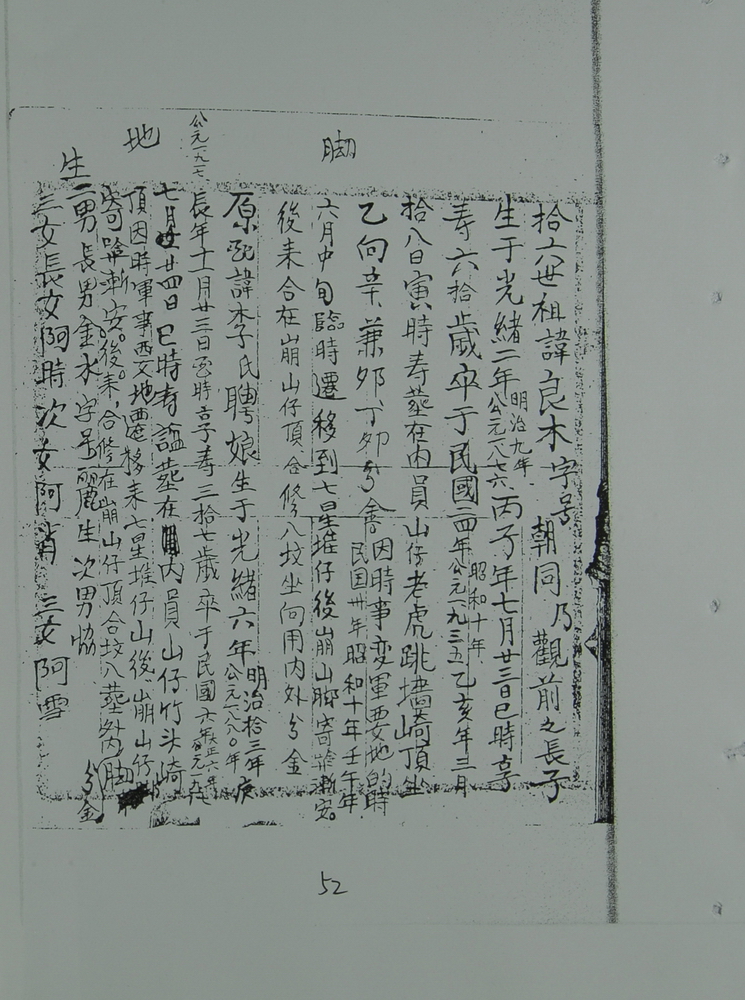 脚
地
公元一九一七
拾六世祖諱良木字号朝同乃觀前之長子
生于光緒二年明治九年公元一八七六丙子年七月廿三日巳時享
寿六拾歲卒于民國二四年昭和十年公元一九三五乙亥年三月
拾八日寅時寿葬在内員山仔老虎跳墻崎頂坐
乙向辛兼夘丁夘分金因時事変軍要地的時
民国卅年昭和十年壬午年
六月中旬臨時遷移到七星堆仔後崩山脚寄葬漸安
後来合在崩山仔頂合修八坟坐向用内外分金
原配諱李氏聘娘生于光緒六年明治拾三年公元一八八〇年庚
長年十一月廿三日時吉子寿三拾七歲卒于民國六年大正六年公元一九一七
七月廿四日巳時寿諡葬在内員山仔竹头崎
頂因時軍事要地遷移来七星堆仔山後崩山仔脚
寄漸安後来合修在崩山仔頂合坟八葬内分金
生二男長男金水字号麗生次男協
三女長女阿時次女阿肖三女阿雪
52